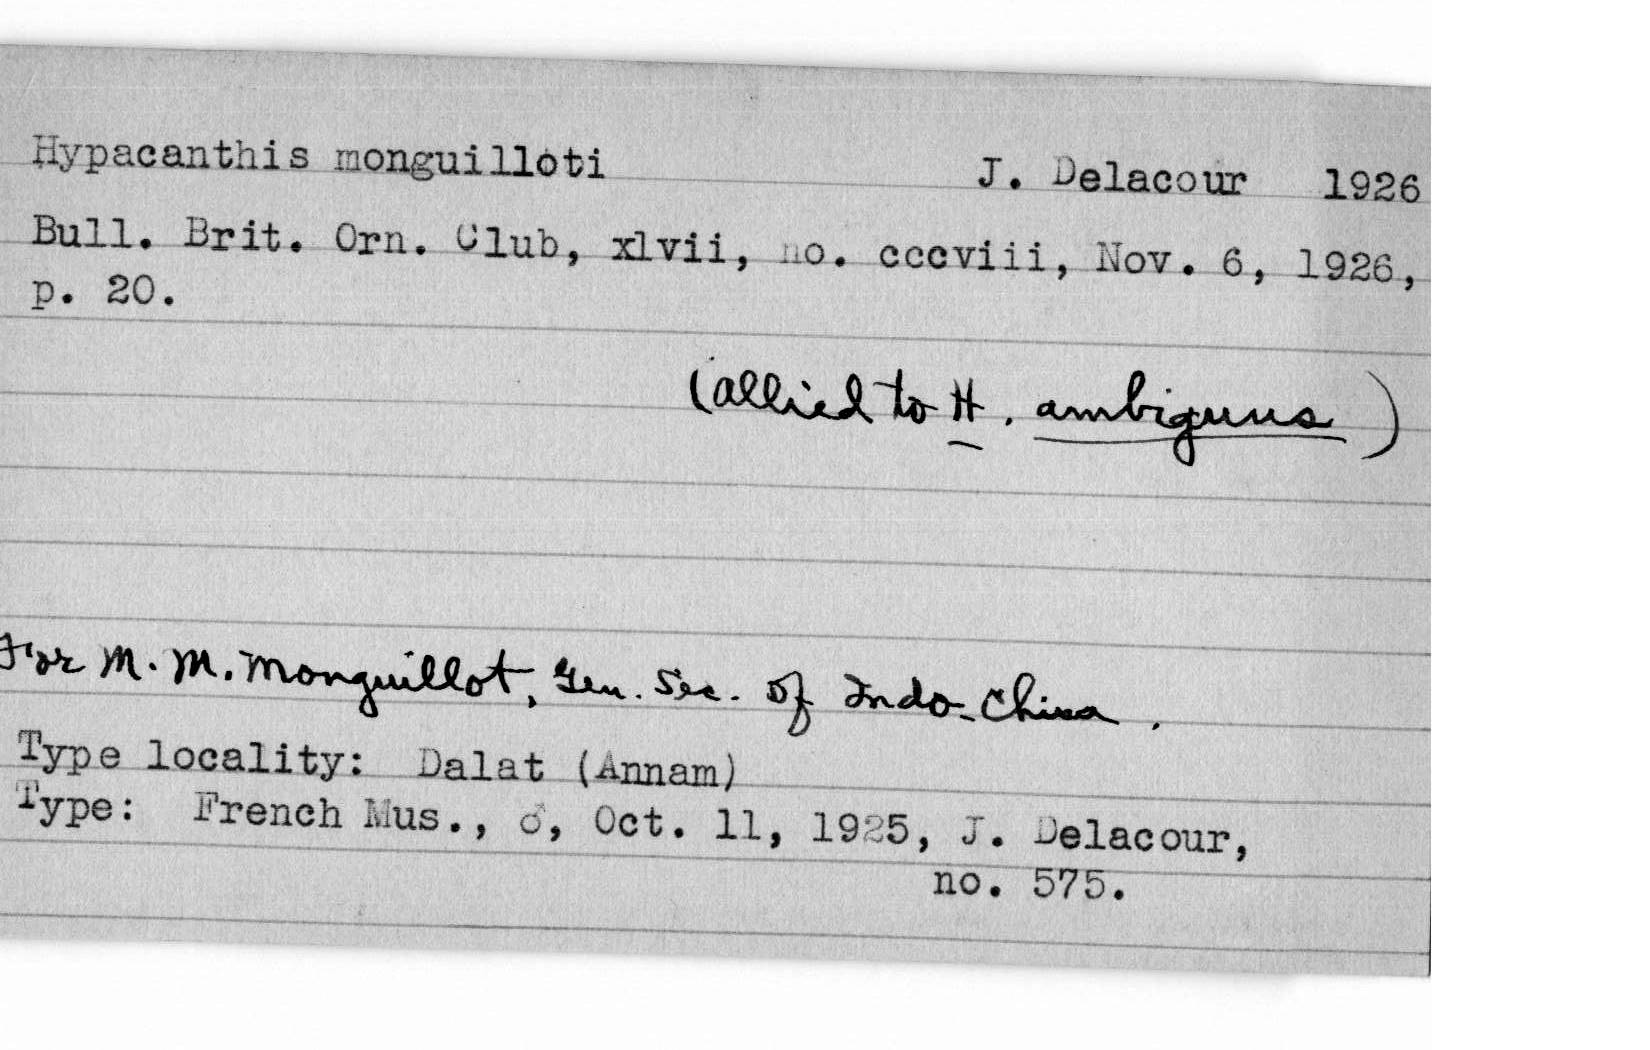 Hypacanthis monguilloti J. Delacour 1926
Bull. Brit. Orn. Club, xlvii, no. cccviii, Nov. 6, 1926,
p. 20.
(allied to H. ambiguus)
For M. M. Monguillot, Gen. Sec. of Indo-China.
Type locality: Dalat (Annam)
Type: French Mus., ♂, Oct. 11, 1925, J. Delacour,
no. 575.